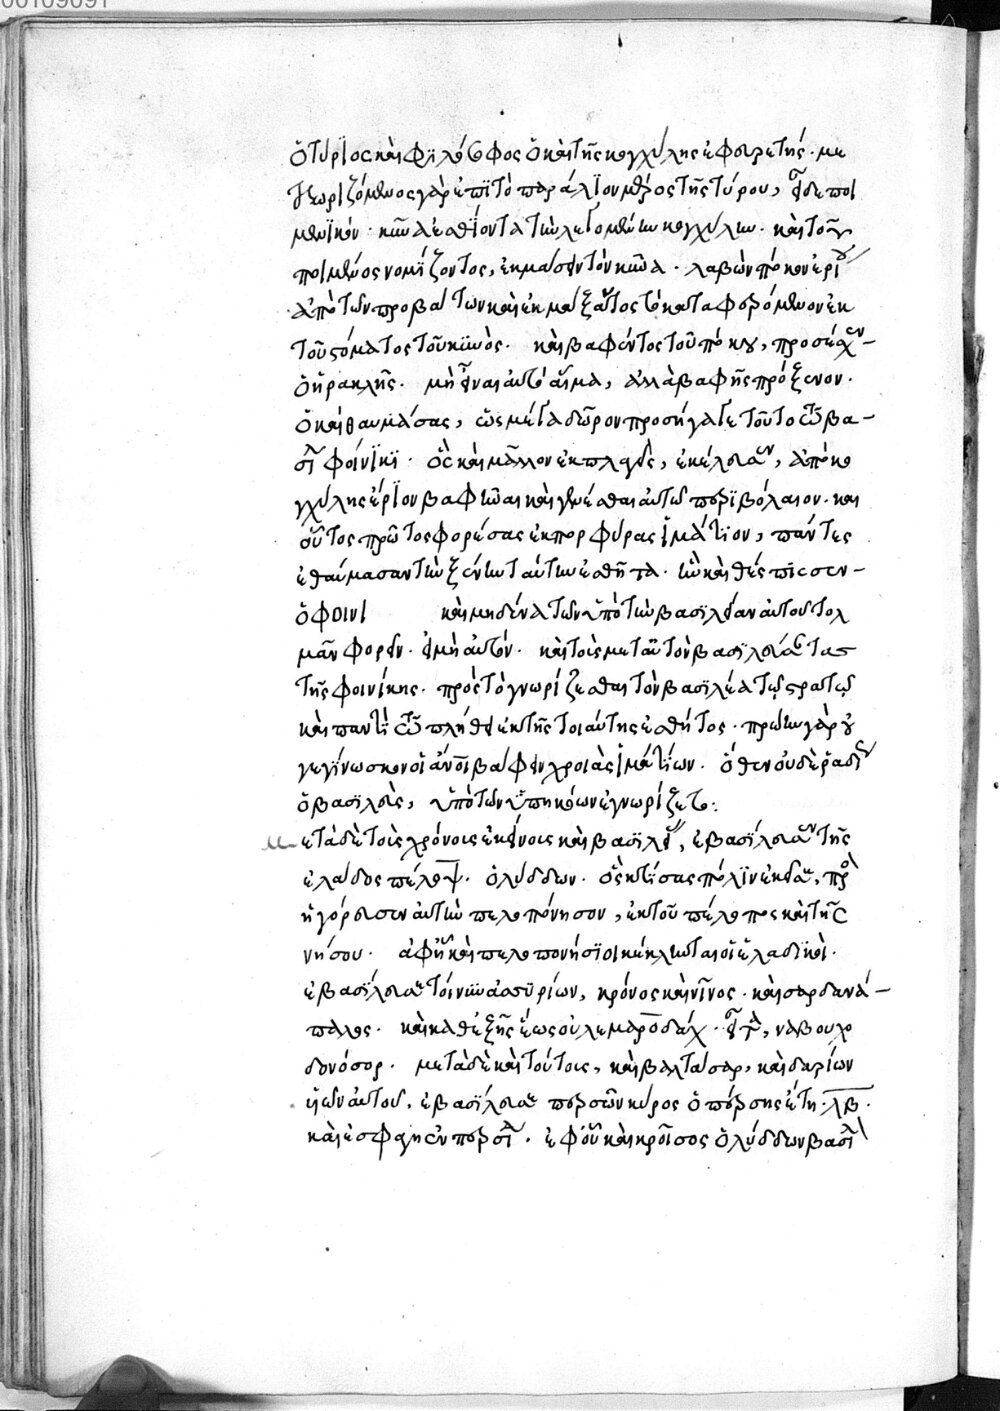 ὁ τύριος καὶ φιλόσοφος ὁ καὶ τῆς κογχύλης ἐφευρετής. με
τεωριζόμενος γὰρ ἐπὶ τὸ παράλιον μέρος τῆς τύρου, εἶδε ποι
μενικὸν κύνα ἐσθίοντα τὴν λεγομένην κογχύλην. καὶ τοῦ
ποιμένος νομίζοντος, αἱμάσσειν τὸν κύνα. λαβὼν πόκον ἐρίου
ἀπὸ τῶν προβάτων καὶ ἐκμάξαντος τὸ καταφερόμενον ἐκ
τοῦ στόματος τοῦ κυνὸς. καὶ βαφέντος τοῦ πόκου, προσέσχεν
ὁ ἡρακλῆς. μὴ εἶναι αὐτὸ αἷμα, ἀλλὰ βαφῆς πρόξενον.
ὁ καὶ θαυμάσας, ὡς μέγα δῶρον προσήγαγε τοῦτο τῷ βα-
σιλεῖ φοίνικι. ὃς καὶ μᾶλλον ἐκπλαγεὶς, ἐκέλευσεν, ἀπὸ κο
γχύλης ἔριον βαφῆναι καὶ γενέσθαι αὐτῷ περιβόλαιον. καὶ
οὗτος πρῶτος φορέσας ἐκ πορφύρας ἱμάτιον, πάντες
ἐθαύμασαν τὴν ξένην ταύτην ἐσθῆτα. ἣν καὶ θέσπισεν-
ὁ φοινι καὶ μηδένα τῶν ὑπὸ τὴν βασιλείαν αὐτοῦ τολ
μᾶν φορεῖν. εἰ μὴ αὐτόν. καὶ τοὺς μετ' αὐτὸν βασιλεύσαντας
τῆς φοινίκης. πρὸς τὸ γνωρίζεσθαι τὸν βασιλέα τῷ στρατῷ
καὶ παντὶ τῷ πλήθει ἐκ τῆς τοιαύτης ἐσθῆτος. πρώην γὰρ οὐ
γεγίνωσκον οἱ ἄνθρωποι βάφειν χροιὰς ἱματίων. ὅθεν οὐδὲ ῥαδίως
ὁ βασιλεὺς, ὑπὸ τῶν ὑπηκόων ἐγνωρίζετο:
μετὰ δὲ τοὺς χρόνους ἐκείνους καὶ βασιλεῖς, ἐβασίλευσεν τῆς
ἑλάδος πέλοψ. ὁ λύδδων. ὃς κτίσας πόλιν ἐκεῖσε, προς
ηγόρευσεν αὐτὴν πελοπόνησον, ἐκ τοῦ πέλοπος καὶ τῆς
νήσου. ἀφ' ἧς καὶ πελοπονήσιοι κέκληνται οἱ ἑλαδικοὶ.
ἐβασίλευσε τοίνυν ἀσσυρίων, κρόνος καὶ νῖνος. καὶ σαρδανά-
παλος. καὶ καθεξῆς ἕως οὐλεμαροδάχ. εἶτα, ναβουχο
δονόσορ. μετὰ δὲ καὶ τούτους, καὶ βαλτάσαρ, καὶ δαρίων
υἱὸν αὐτοῦ, ἐβασίλευσε περσῶν κύρος ὁ πέρσης ἔτη. λβ.
καὶ ἐσφάγη ἐν περσίδι. ἐφ' οὗ καὶ κροῖσος ὁ λύδδων βασιλεὺς